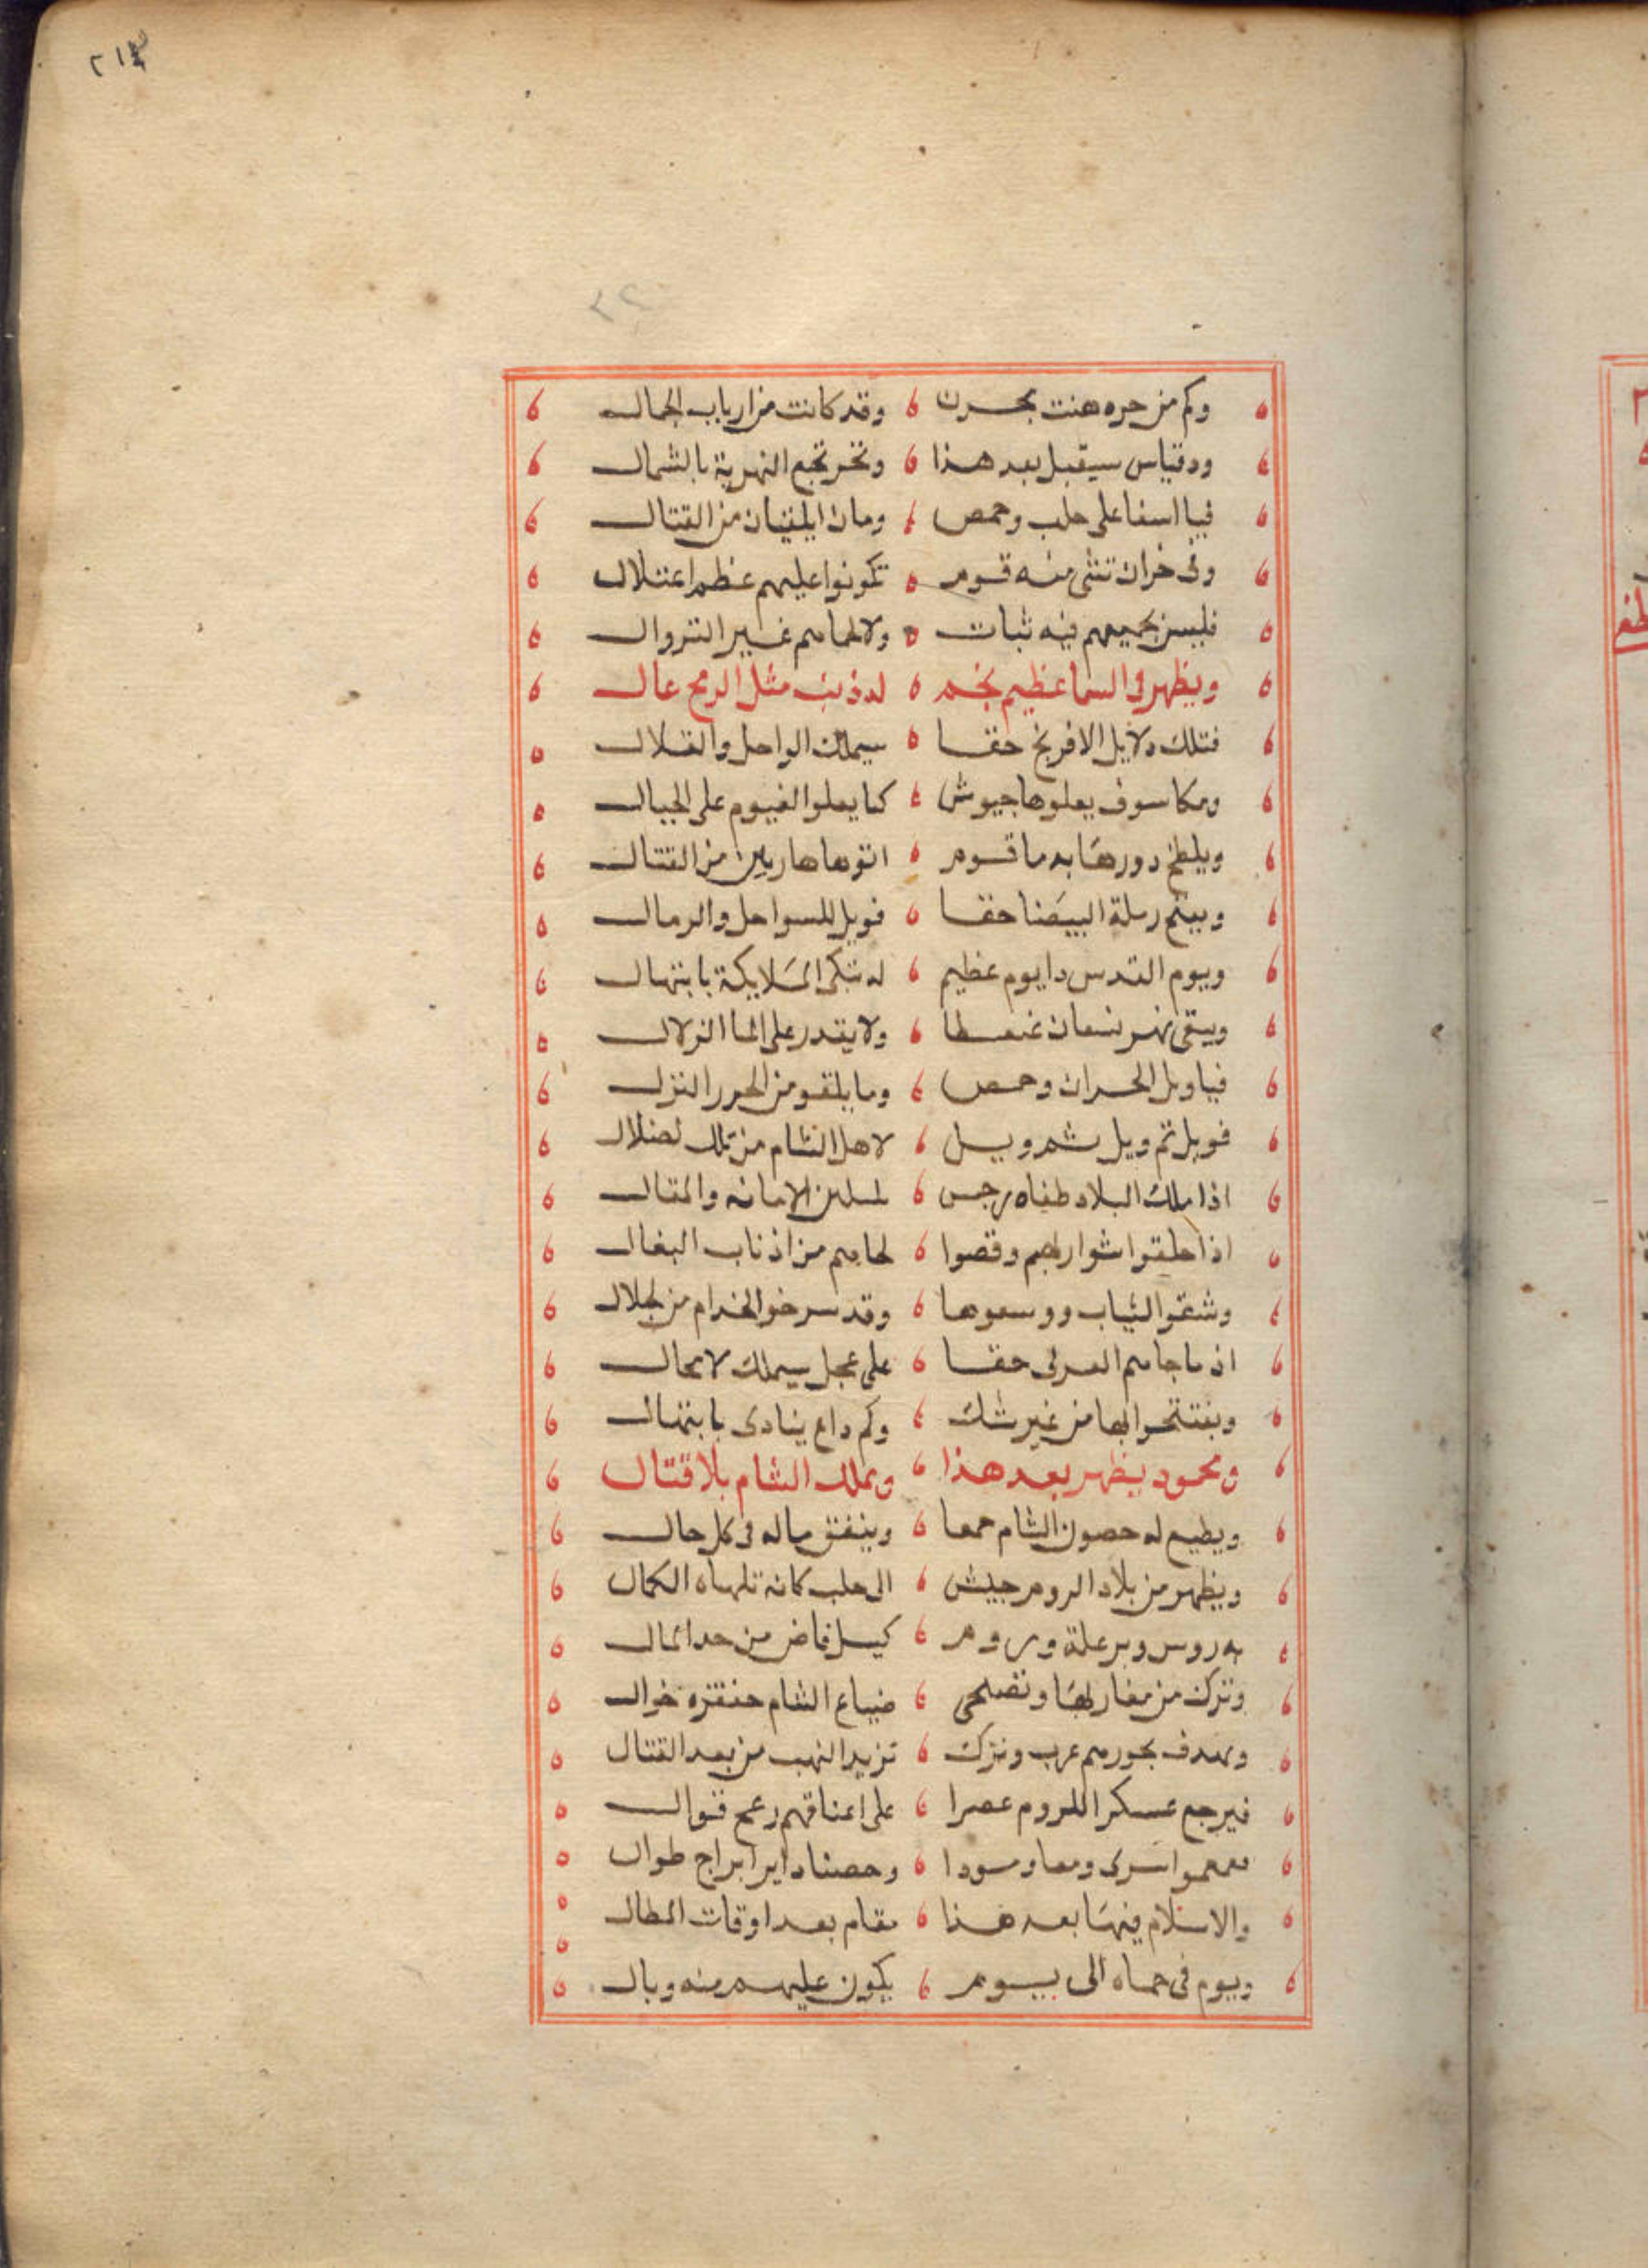 ٢١٤
٢٢
وكم من حره هنت بحزن وقد كانت من ارباب الجمال
ودقياس سيقبل بعد هذا وتخر تجع النهرية بالشمال
فيا اسفا على حلب وحمص ومان من القتال
وفى خران تنثى منه قوم تكونوا عليهم عظم اعتلال
فليس بجميعهم فيه ثبات ولا لحاهم غير النزوال
ويظهر فى السما عظيم نجم له ذنب مثل الرمح عال
فتلك دلايل الافرنج حقا سيملك الواحل والقلال
ومكا سوف يعلوها جيوش كما يعلوا الغيوم على الجبال
ويلطخ دورها بدما قوم اتوها هاربين من القتال
ويفتح رملة البيضا حقا فويل للسواحل والرمال
ويوم القدس دا يوم عظيم له تبكى الملايكة بابتهال
ويبقى نهر نعمان ولا يقدر على الما الزلال
فياويل الحران وحمص وما يلقو من الحرر النزل
فويل ثم ويل ثم ويل لاهل الشام من تلك لضلال
اذا ملك البلاد طغاه رجس الامانه والمقال
اذا حلقوا شواربهم وقصوا لحاهم من اذناب البغال
وشقوا الثياب ووسعوها وقد سرخوا الخدام من لجلال
اذ ما جاهم العربى حقا على عجل سيملك لا محال
ويفتتحوا لها من غير شك وكم داع ينادى بابتهال
ومحمود يظهر بعد هذا ويملك الشام بلا قتال
ويطيع له حصون الشام جمعا وينفق ماله فى كل حال
ويظهر من بلاد الروم جيش الى حلب كانه تلهاه الكمال
به روس وبرعلة وروم كسيل فاض من حد المال
وترك من مغاربها وتضحى ضياع الشام خوال
بحورهم عرب وترك تزيد النهب من بعد القتال
فيرجع عسكر اللروم عصرا على اعناقهم رمح قوال
اسرى ومعا وسودا وحصنا داير ابراج طوال
والاسلام فيها بعد هذا مقام بعد اوقات المطال
ويوم فى حماه الى يوم يكون عليهم منه وبال